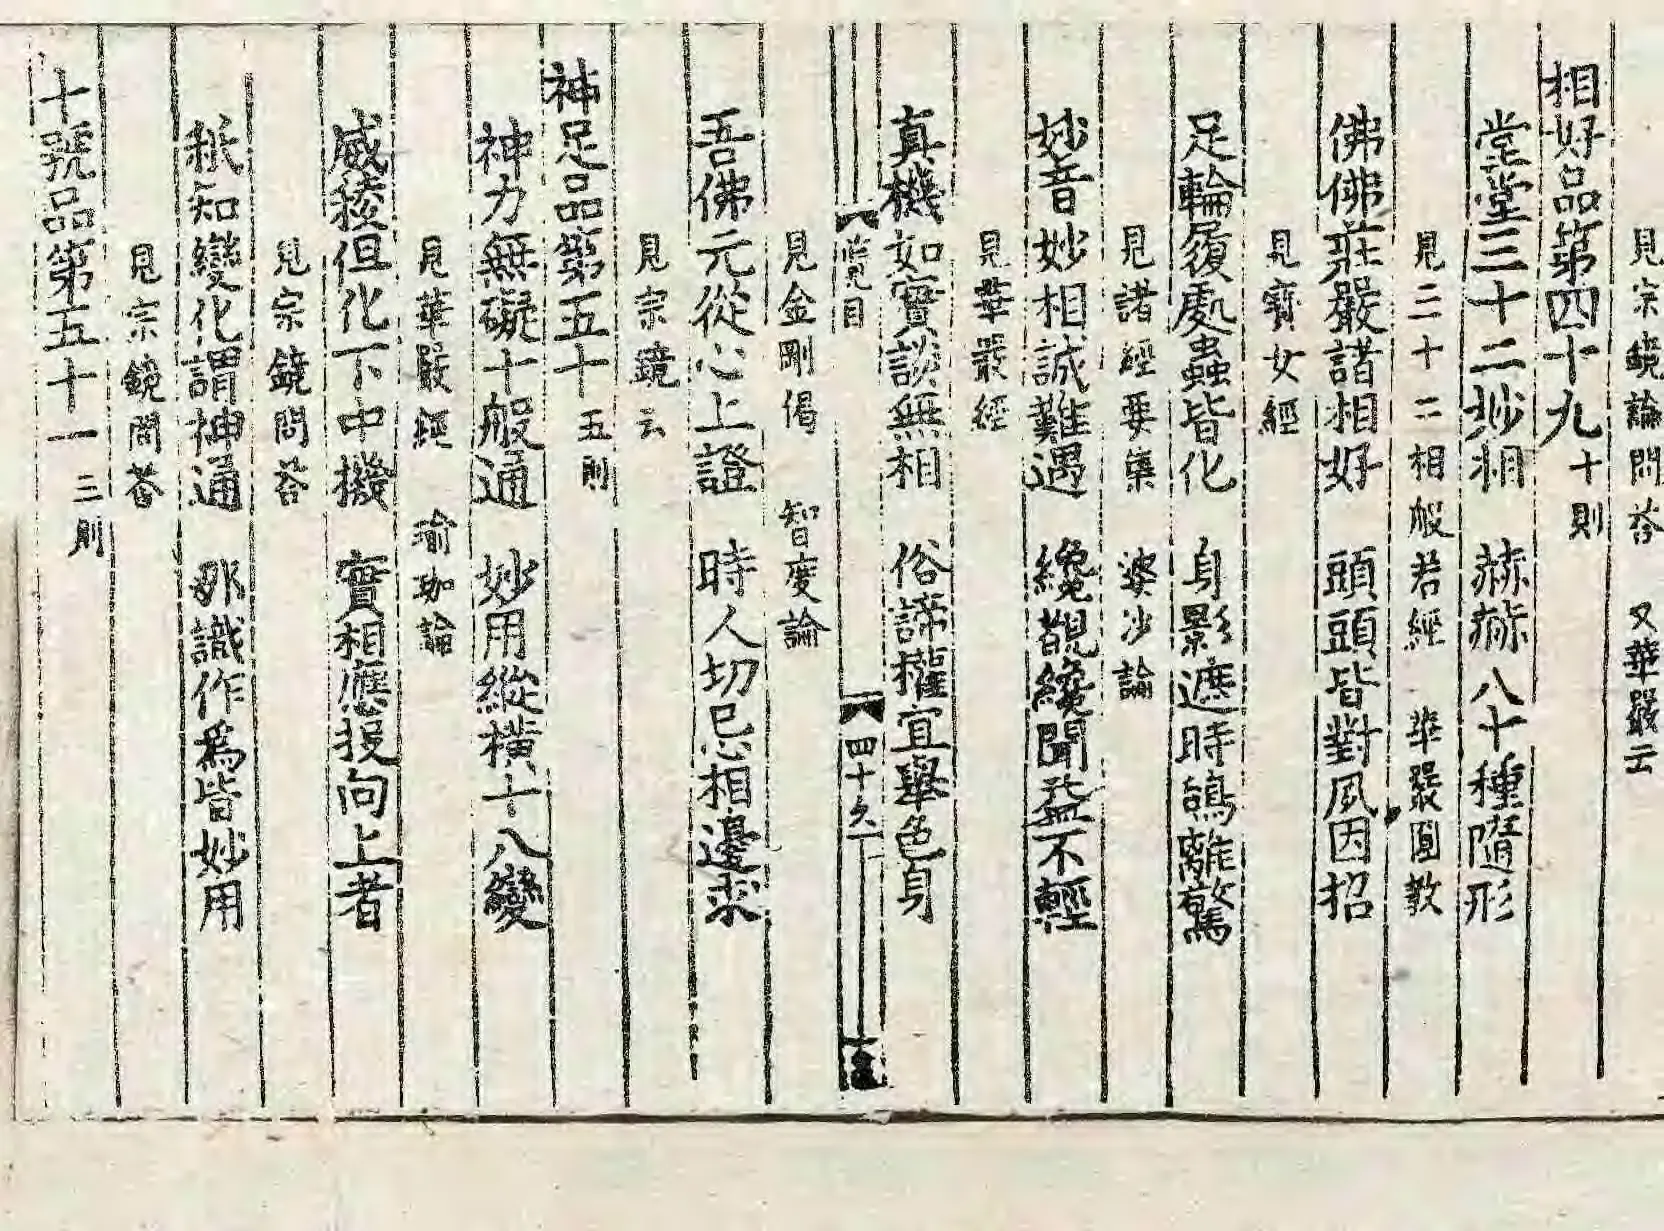 見宗鏡論問荅　又華嚴云
相好品第四十九 十則
堂堂三十二妙相　赫赫八十種隨形
見三十二相般若經　華嚴圓教
佛佛莊嚴諸相好　頭頭皆對風因招
見寶女經
足輪履處蟲皆化　身影遮時鴿離驚
見諸經要集　婆沙論
妙音妙相誠難遇　纔覩纔聞益不輕
見華嚴經
真機如實談無相　俗諦權宜舉色身
目　四十六
見金剛偈　智度論
吾佛元從心上證　時人切忌相邊求
見宗鏡云
神足品第五十 五則
神力無礙十般通　妙用縱橫十八變
見華嚴經　瑜珈論
威稜但化下中機　實相應投向上者
見宗鏡問荅
秖知變化謂神通　那識作爲皆妙用
見宗鏡問荅
十號品第五十一 三則